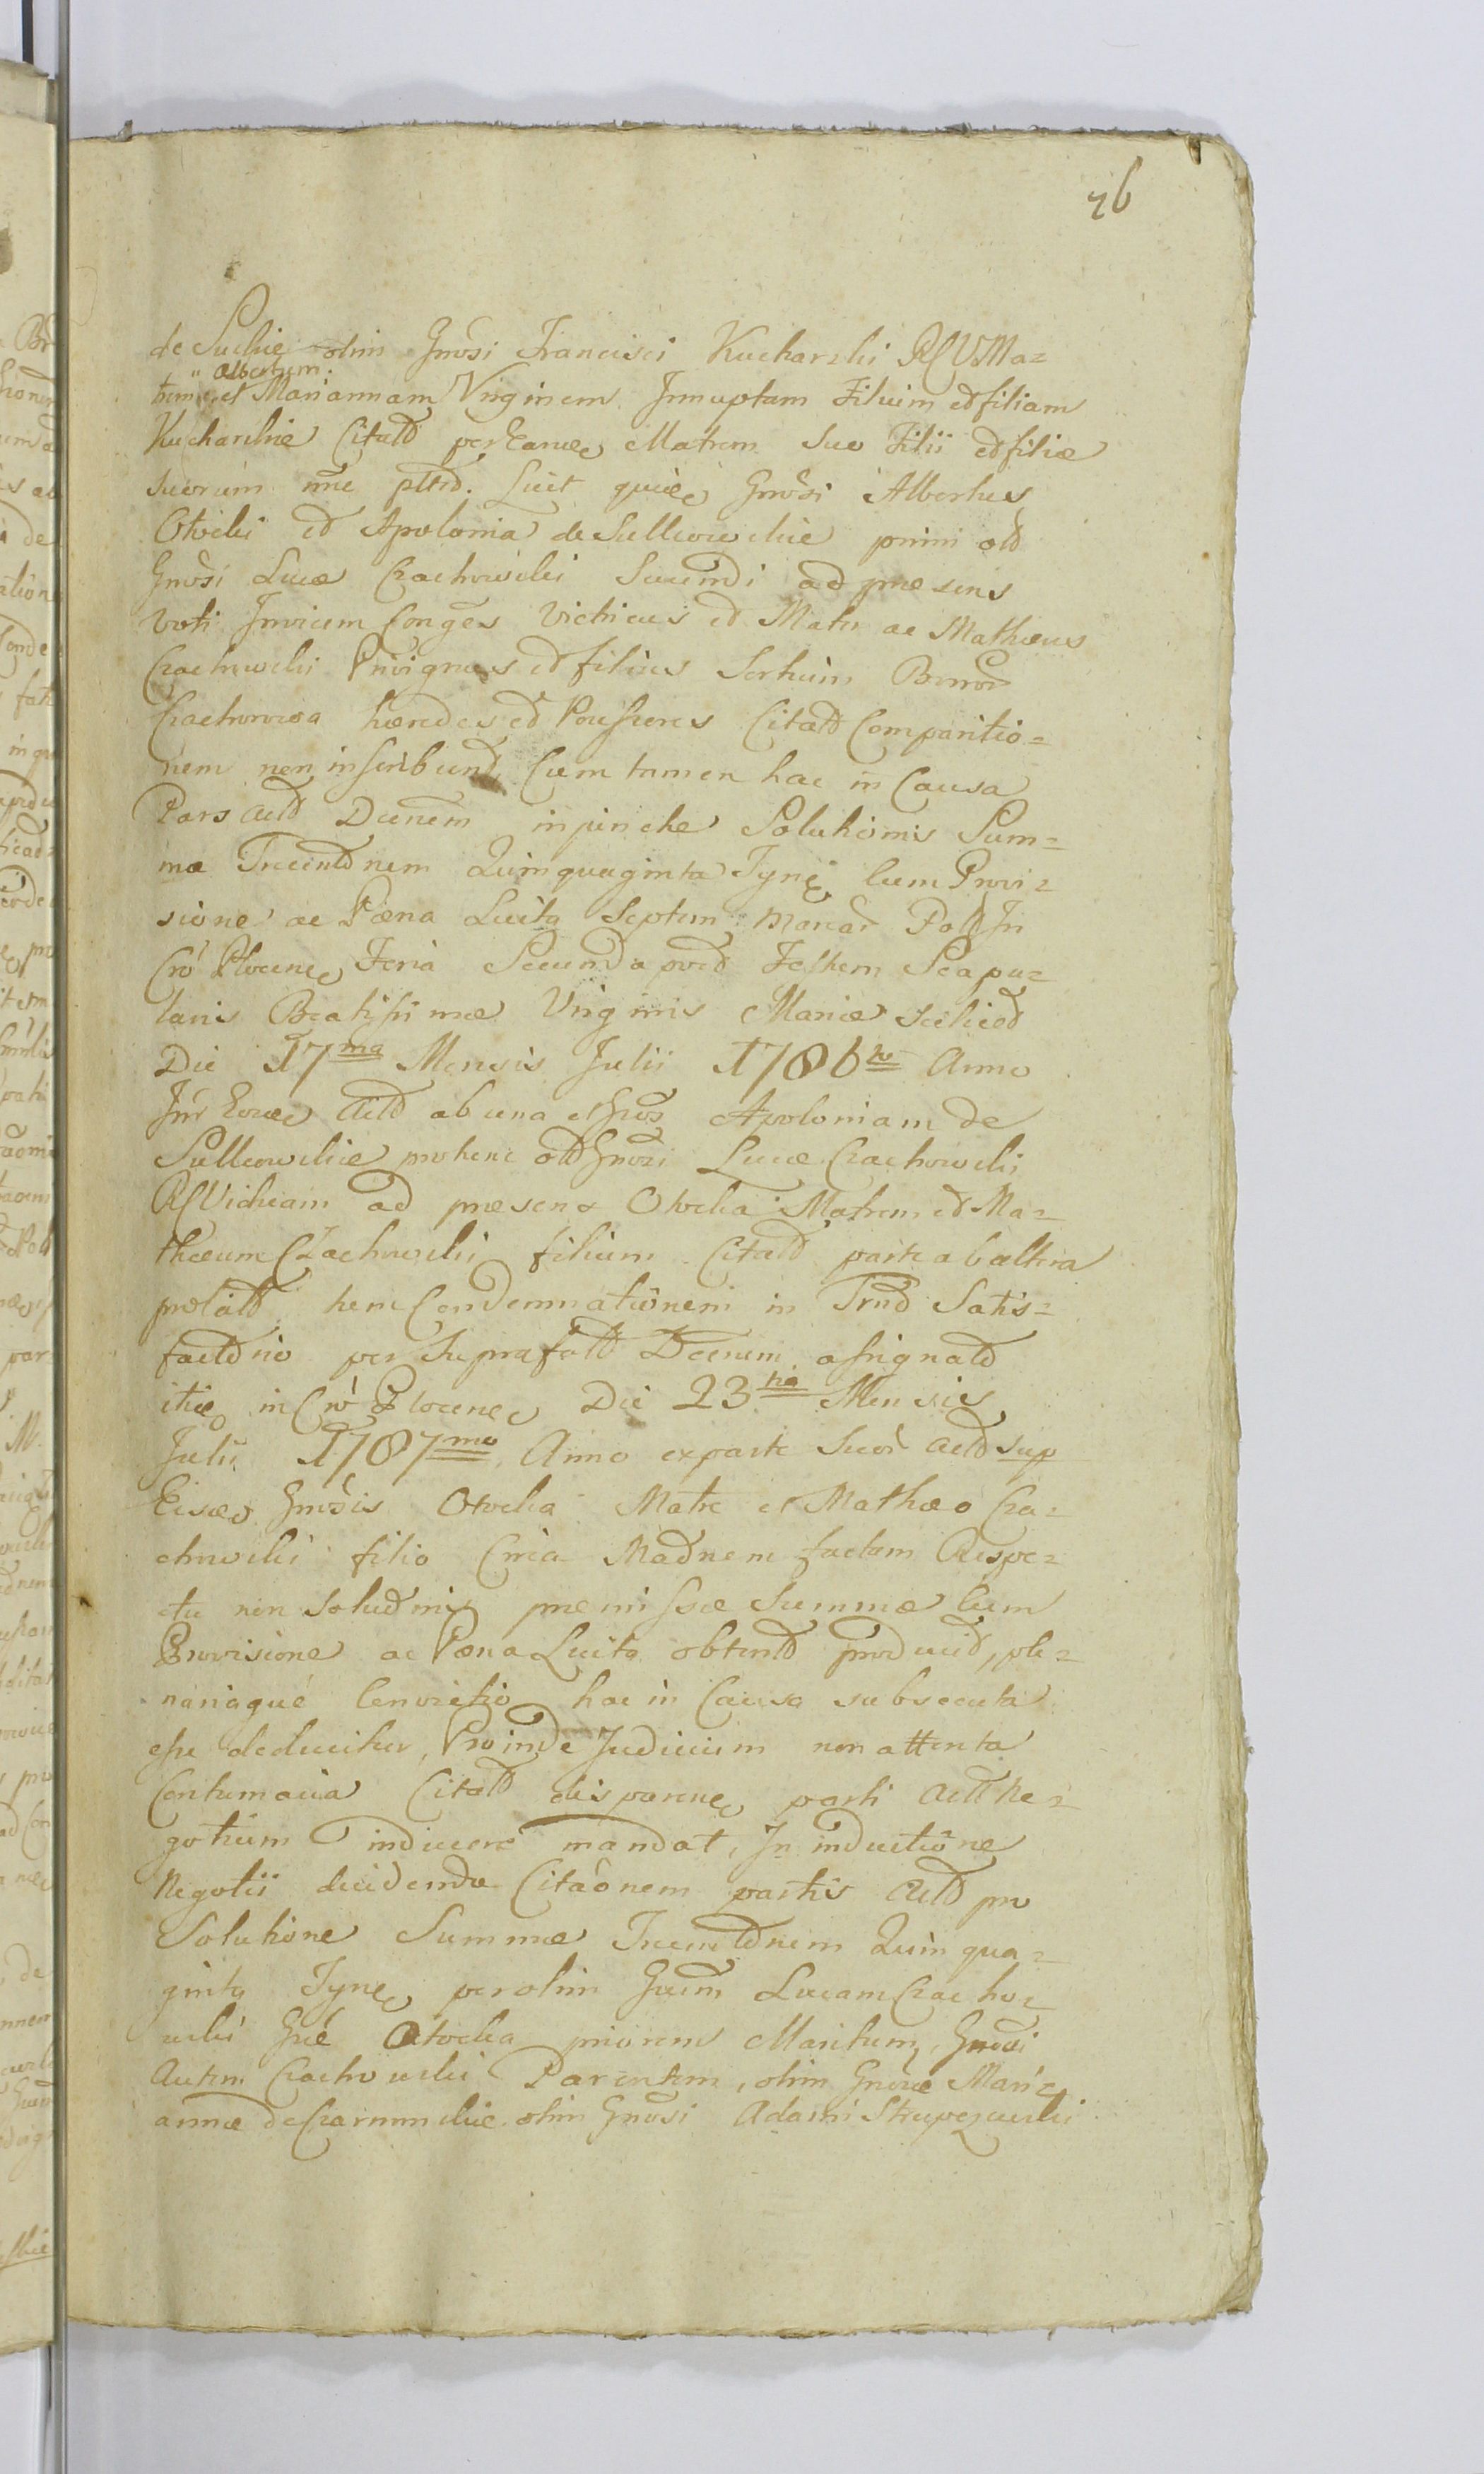 76
de Suskie olim Gnosi Francisci Kucharski RSVMa=
Albertum
trem et Mariannam Virginem Innuptam Filium et filiam
Kucharskie Citatt per Eande Matrem suo Filii et filiæ
suorum nne Luit Gnosi Albertus
Otocki et Apolonia de Sulkowskie primi ott
Gnosi Lucæ Czachowski Secundi ad præsens
Voti Invicem Conges Victricus et Mater ac Mathæus
Czachowski Privignus et filius Sortium Bonor
Czachowo hæredes et Possesores Citatt Comparitio=
nem non inscribund Cum tamen hac in Causa
Pars Actt Decnem in puncto Solutionis Sum=
mæ Trecenttnem Quinquaginta Tyne cum Provi=
sione ac Pæna Luita Septem Marcar Poll In
Cro Plocene Feria Secunda post Festum Scapu=
laris Beatissimæ Virginis Mariæ scilicet
Die 17ma Mensis Julii 1786to Anno
Inr Eosde Actt ab una et Gnos Apoloniam de
Sulkowskie pro tunc ott Gnosi Lucæ Czachowski
RSViduam ad præsens Otocka Matrem et Ma=
thæum Czachowski filium Citatt parte ab altera
prolatt tum Condemnationem in Trnd Satis=
facttnio per Suprafatt Decnem assignatt
in Cro Plocene Die 23tia Mensis
Julii 1787mo Anno ex parte Suor Actt sup
Eisde Gnosis Otocka Matre et Mathæo Cza=
chowski filio Circa Madnem factam Respe=
ctu non Soludnis præmissæ Summæ cum
Provisione ac Pæna Luita obtentt producit, ple=
nariaque Convictio hac in Causa subsecuta
esse deducitur, Proinde Judicium non attenta
Contumacia Citatt disparene parti Actt Ne=
gotium inducere mandat, In inductione
Negotii decidendo Citaonem partis Actt pro
Solutione Summæ Trecenttnem Quinqua=
ginta Tyne per olim Gnm Lucam Czacho=
wski Gne Otocka priorem Maritum, Gnosi
Autem Czachowski Parentem, olim Gnosæ Mari=
annæ de olim Gnosi Adami